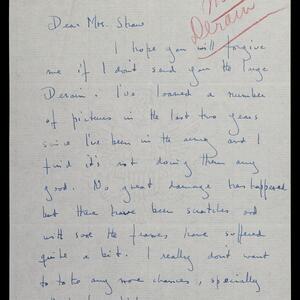 Derain
Dear Mrs. Shaw
I hope you will forgive
me if I don't send you the large
Derain. I've loaned a number
of pictures in the last two years
since I've been in the army and I
find it's not doing them any
good. No great damage has happened
but there have been scratches and
with some the frames have suffered
quite a bit. I really don't want
to take any more chances, specially